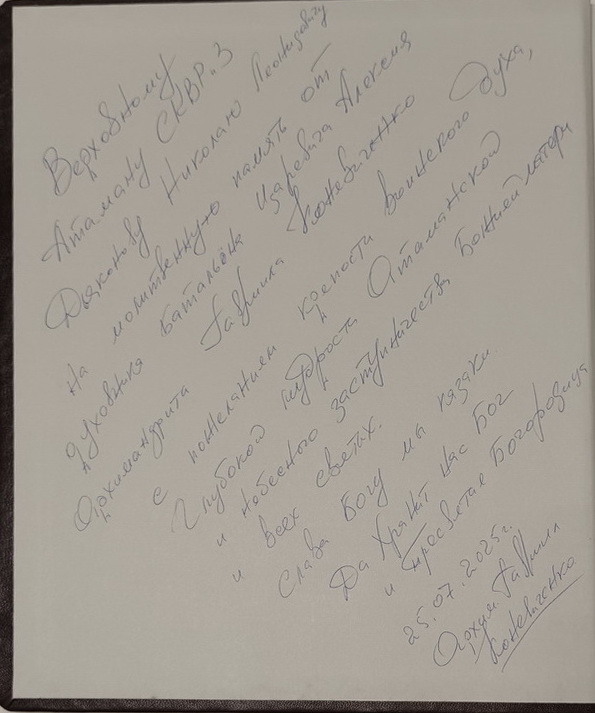 Верховному
Атаману СКВРиЗ
Дьяконову Николаю Леонидовичу
на молитвенную память от
духовника батальона Царевича Алексия
Архимандрита Гавриила Коневиченко
с пожеланием крепости воинского духа,
Глубокой мудрости Атаманской
и небесного заступничества Божией матери
и всех святых.
Слава Богу мы казаки.
Да Хранит нас Бог
и пресвятая Богородица
25.07.2025г.
Архим. Гавриил
Коневиченко